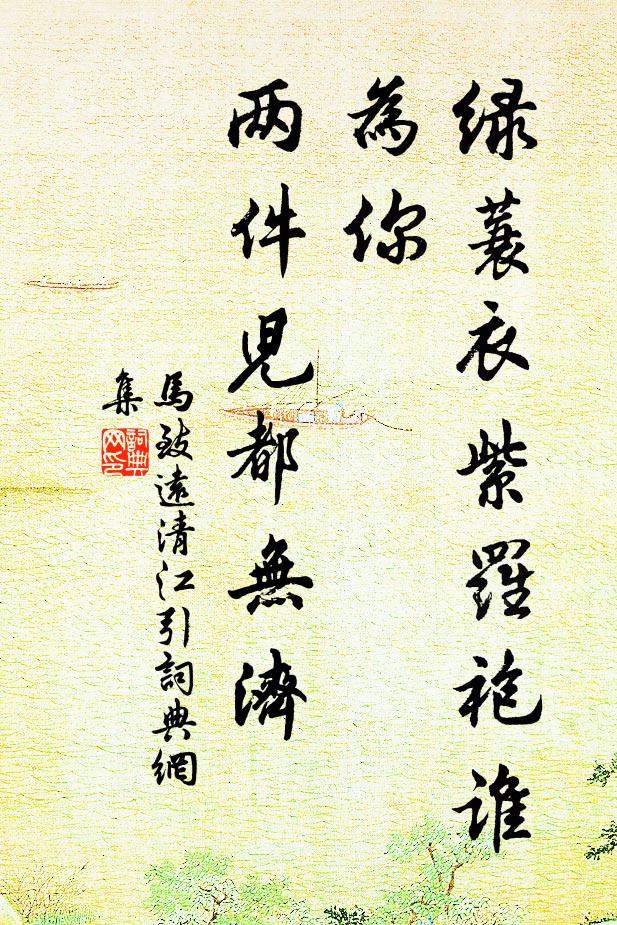 绿蓑衣紫羅袍誰
為你
两件兒都無濟
馬致遠清江引詞典網
集
詞典
网印